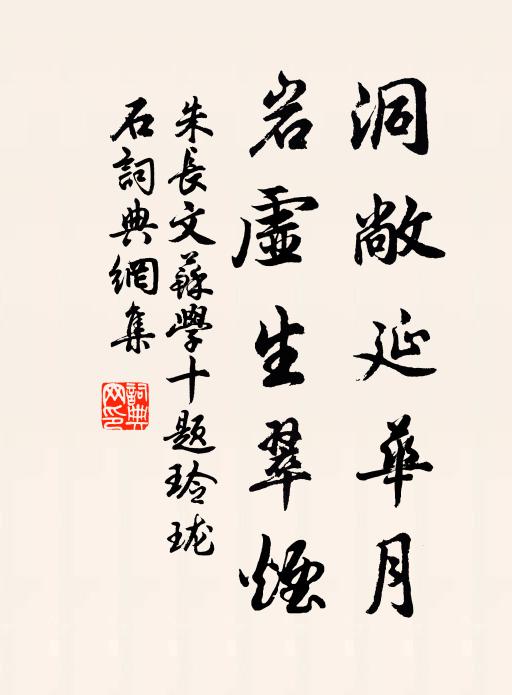 洞敞延華月
岩虛生翠煙
朱長文蘇學十題玲瓏
石詞典網集
詞典
网印